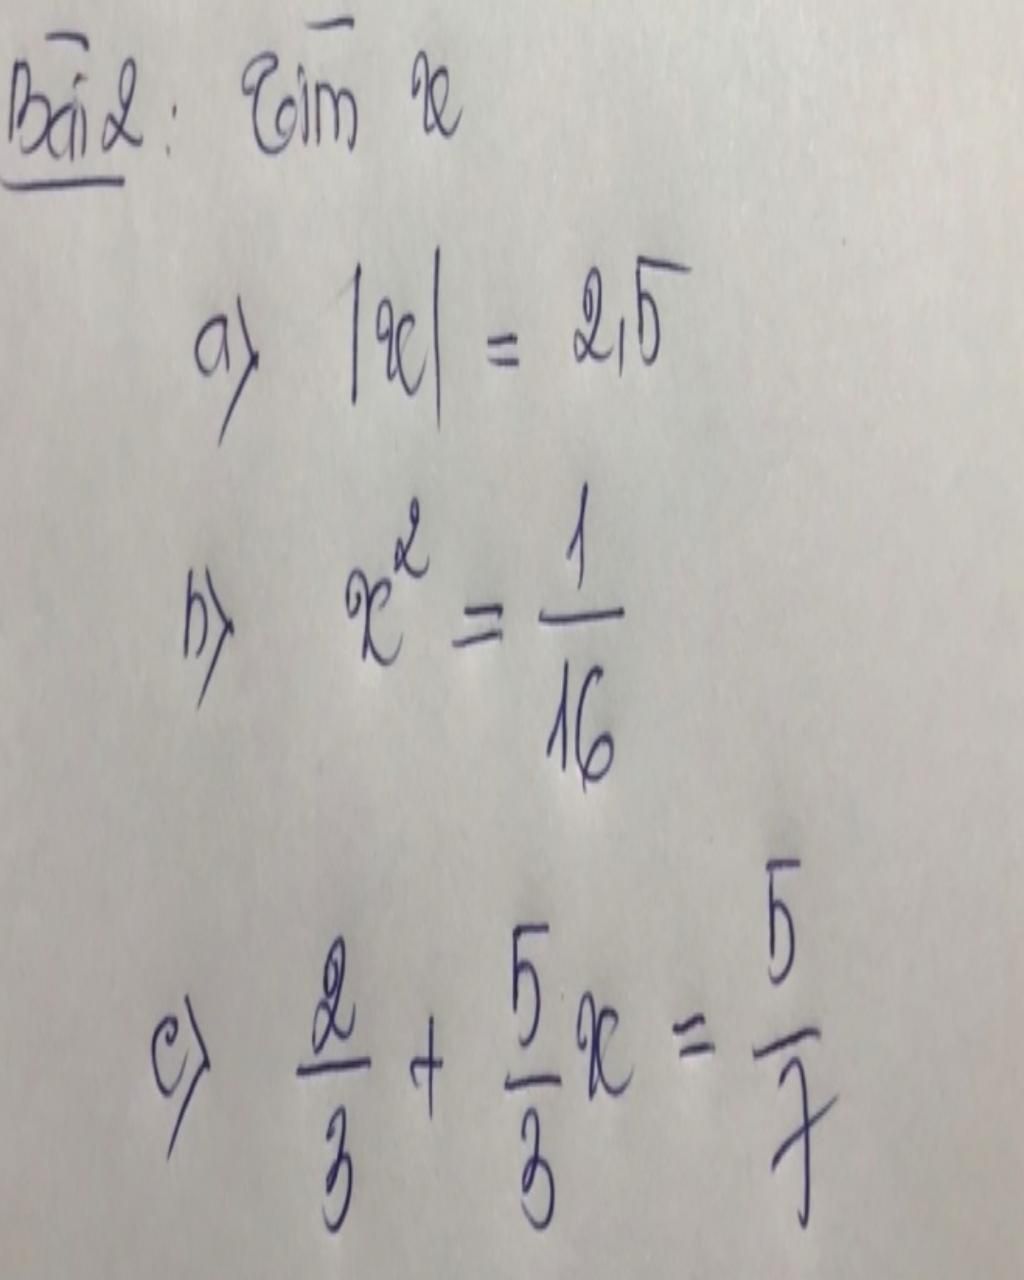 Bài 2: Tìm x
a) |x| = 2,5
b) x² = 1/16
c) 2/3 + 5/3 x = 5/7